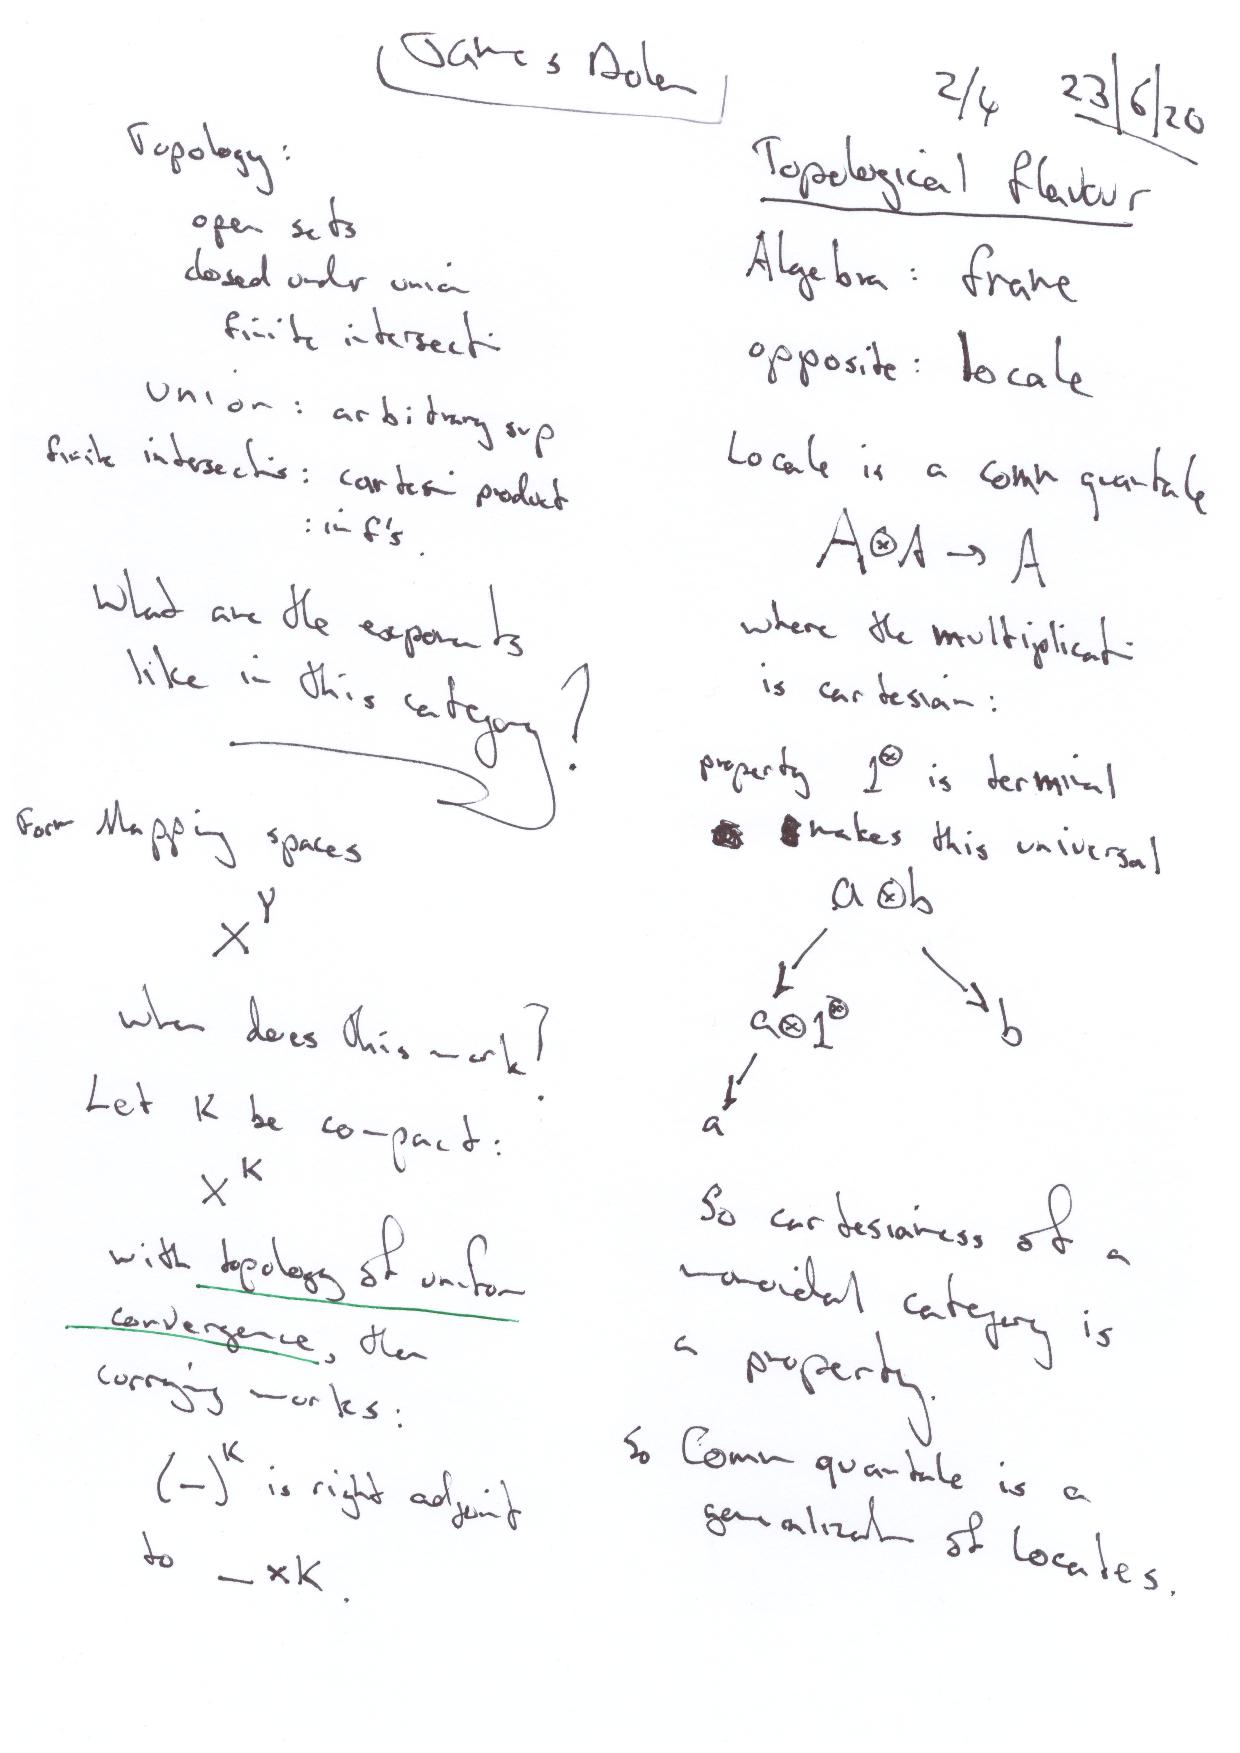 James Dolan
2/4 23/6/20
Topology:
open sets
closed under union
finite intersecti
union: arbitrary sup
finite intersectis: cartesi product
: inf's.
What are the exponents
like in this category?
Form Mapping spaces
X^Y
When does this work?
Let K be compact:
X^K
with topology of uniform
convergence, then
currying works:
(–)^K is right adjoint
to _ × K.
Topological flavour
Algebra: frame
opposite: locale
Locale is a comm quantale
A⊗A → A
where the multiplicati
is cartesian:
property 1^⊗ is terminal
makes this universal
a ⊗ b
a⊗1^⊗ b
a
So cartesianess of a
monoidal category is
a property.
So Comm quantale is a
generalizat of locales.